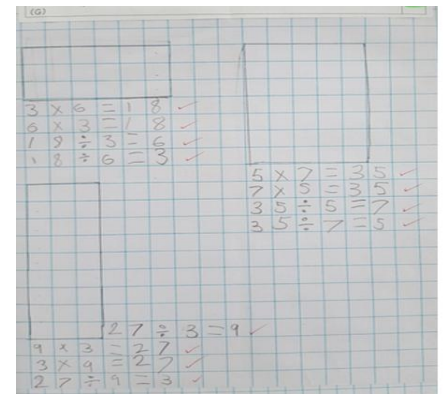 (G)
3 x 6 = 1 8 ✓
6 x 3 = 1 8 ✓
1 8 ÷ 3 = 6 ✓
1 8 ÷ 6 = 3 ✓
5 x 7 = 3 5 ✓
7 x 5 = 3 5 ✓
3 5 ÷ 5 = 7 ✓
3 5 ÷ 7 = 5 ✓
2 7 ÷ 3 = 9 ✓
9 x 3 = 2 7 ✓
3 x 9 = 2 7 ✓
2 7 ÷ 9 = 3 ✓